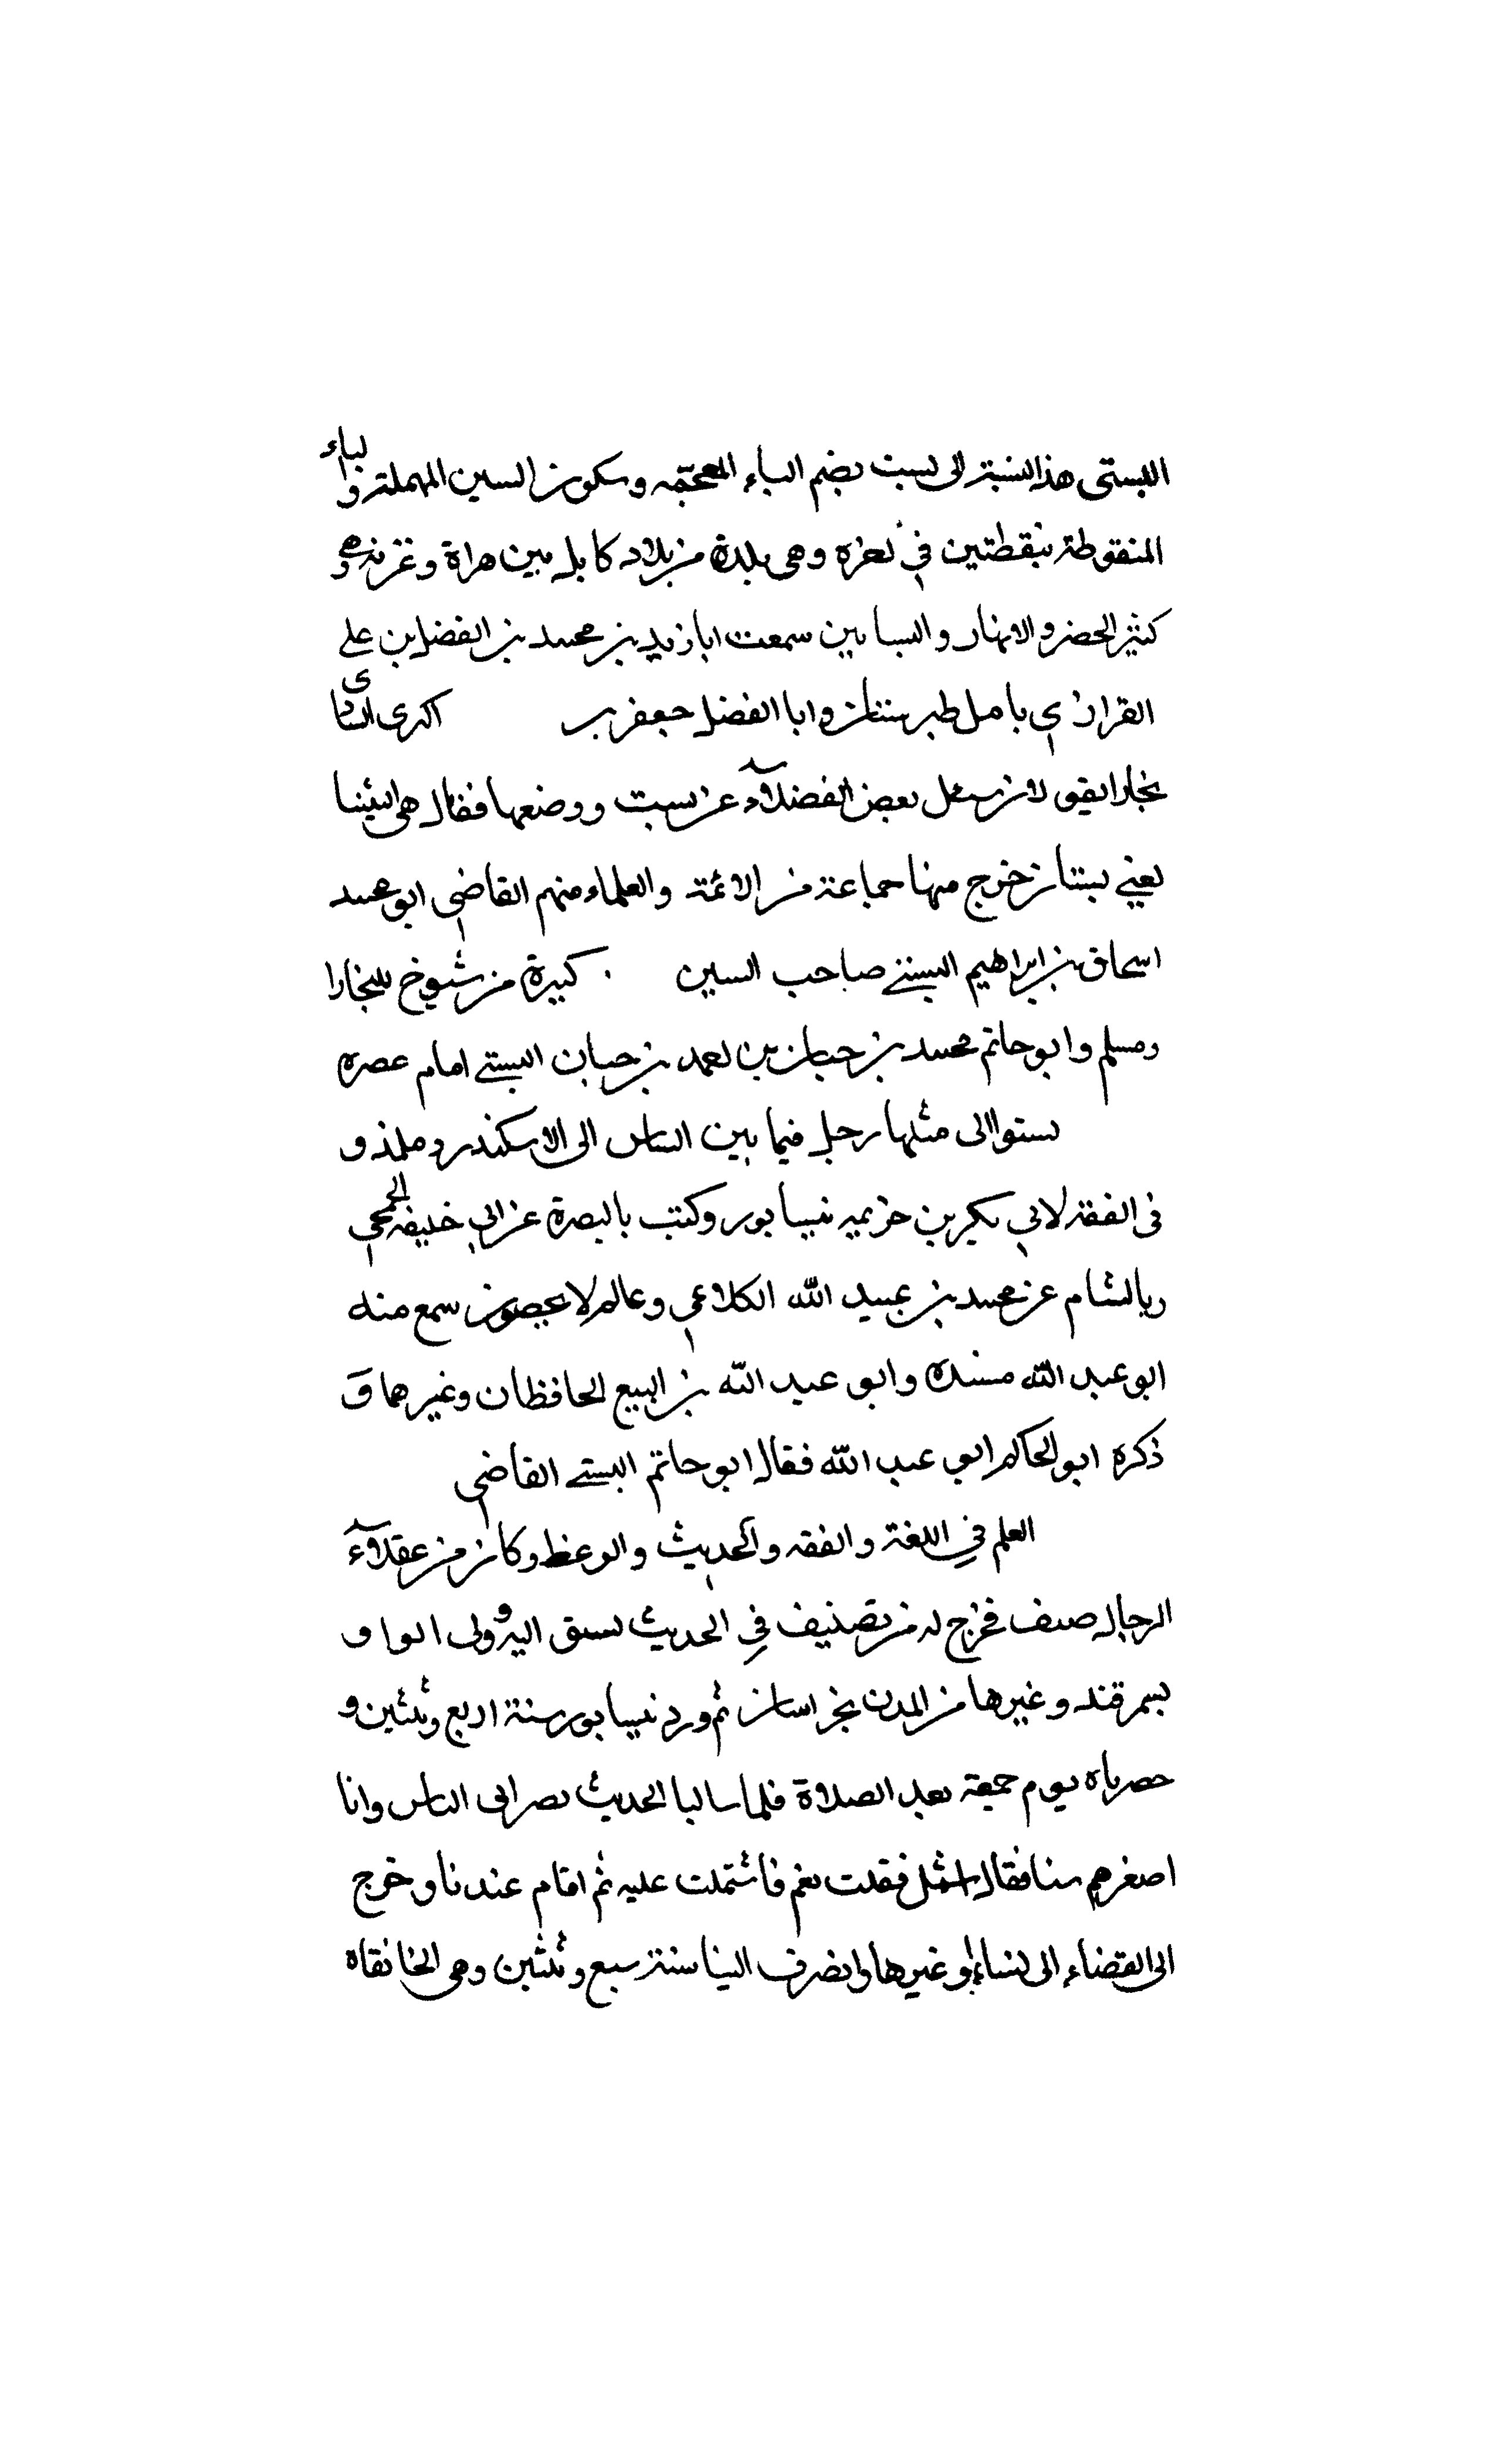 البستى هذا النسبة الى بست بضم الباء المعجمه وسكون السين المهملة والباء
المنقوطة بنقطتين في اخره وهى بلدة من بلاد كابل بين هراة وغزنه وهى
كثير الحضر والانهار والبساتين سمعت ابا زيد بن محمد بن الفضل بن علي
القرازي بامل طبرستان وابا الفضل جعفر بن الكرى استادى
بخارا يقولان سئل بعض الفضلاء عن بست ووضعها فقال هى
يعني بستان خرج منها جماعة من الائمة والعلماء منهم القاضي ابو محمد
اسحاق بن ابراهيم البستي صاحب السنن كبيرة من شيوخ البخارا
ومسلم وابو حاتم محمد بن حبان بن احمد بن حبان البستي امام عصره
الى مثلها رحل فيما بين الناس الى الاسكندر
في الفقه لابي بكر بن خزيمه نيسابور وكتب بالبصرة عن ابي خليفه الجمحي
وبالشام عن محمد بن عبيد الله الكلاعي وعالم لا يحصون سمع منه
ابو عبد الله منده وابو عبد الله بن البيع الحافظان وغيرهما و
ذكره ابو الحاكم ابو عبد الله فقال ابو حاتم البستي القاضي
العلم في اللغة والفقه والحديث والوعظ وكان من عقلاء
الرجال صنف فخرج له من تصنيف في الحديث لسبق اليه وولى
بسمرقند وغيرها من المدن بخراسان ثم ورد نيسابور سنة اربع وثلثين و
حضرناه يوم جمعة بعد الصلاة فلما سالنا الحديث نصر الى الناس وانا
اصغرهم سنا فقال استمل فقلت نعم فاستملت عليه ثم اقام عندنا وخرج
الى القضاء الى نساء وغيرها وانصرف الينا سنة سبع وثلثين وهى الخانقاه